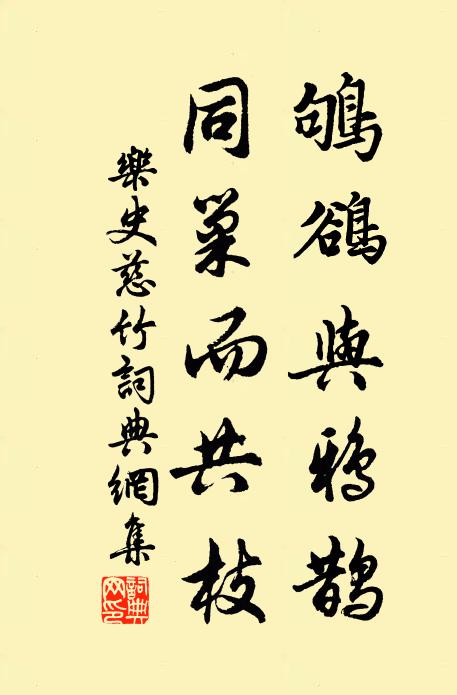 鴝鵒與鴉鵲
同巢而共枝
樂史慈竹詞典網集
詞典网印